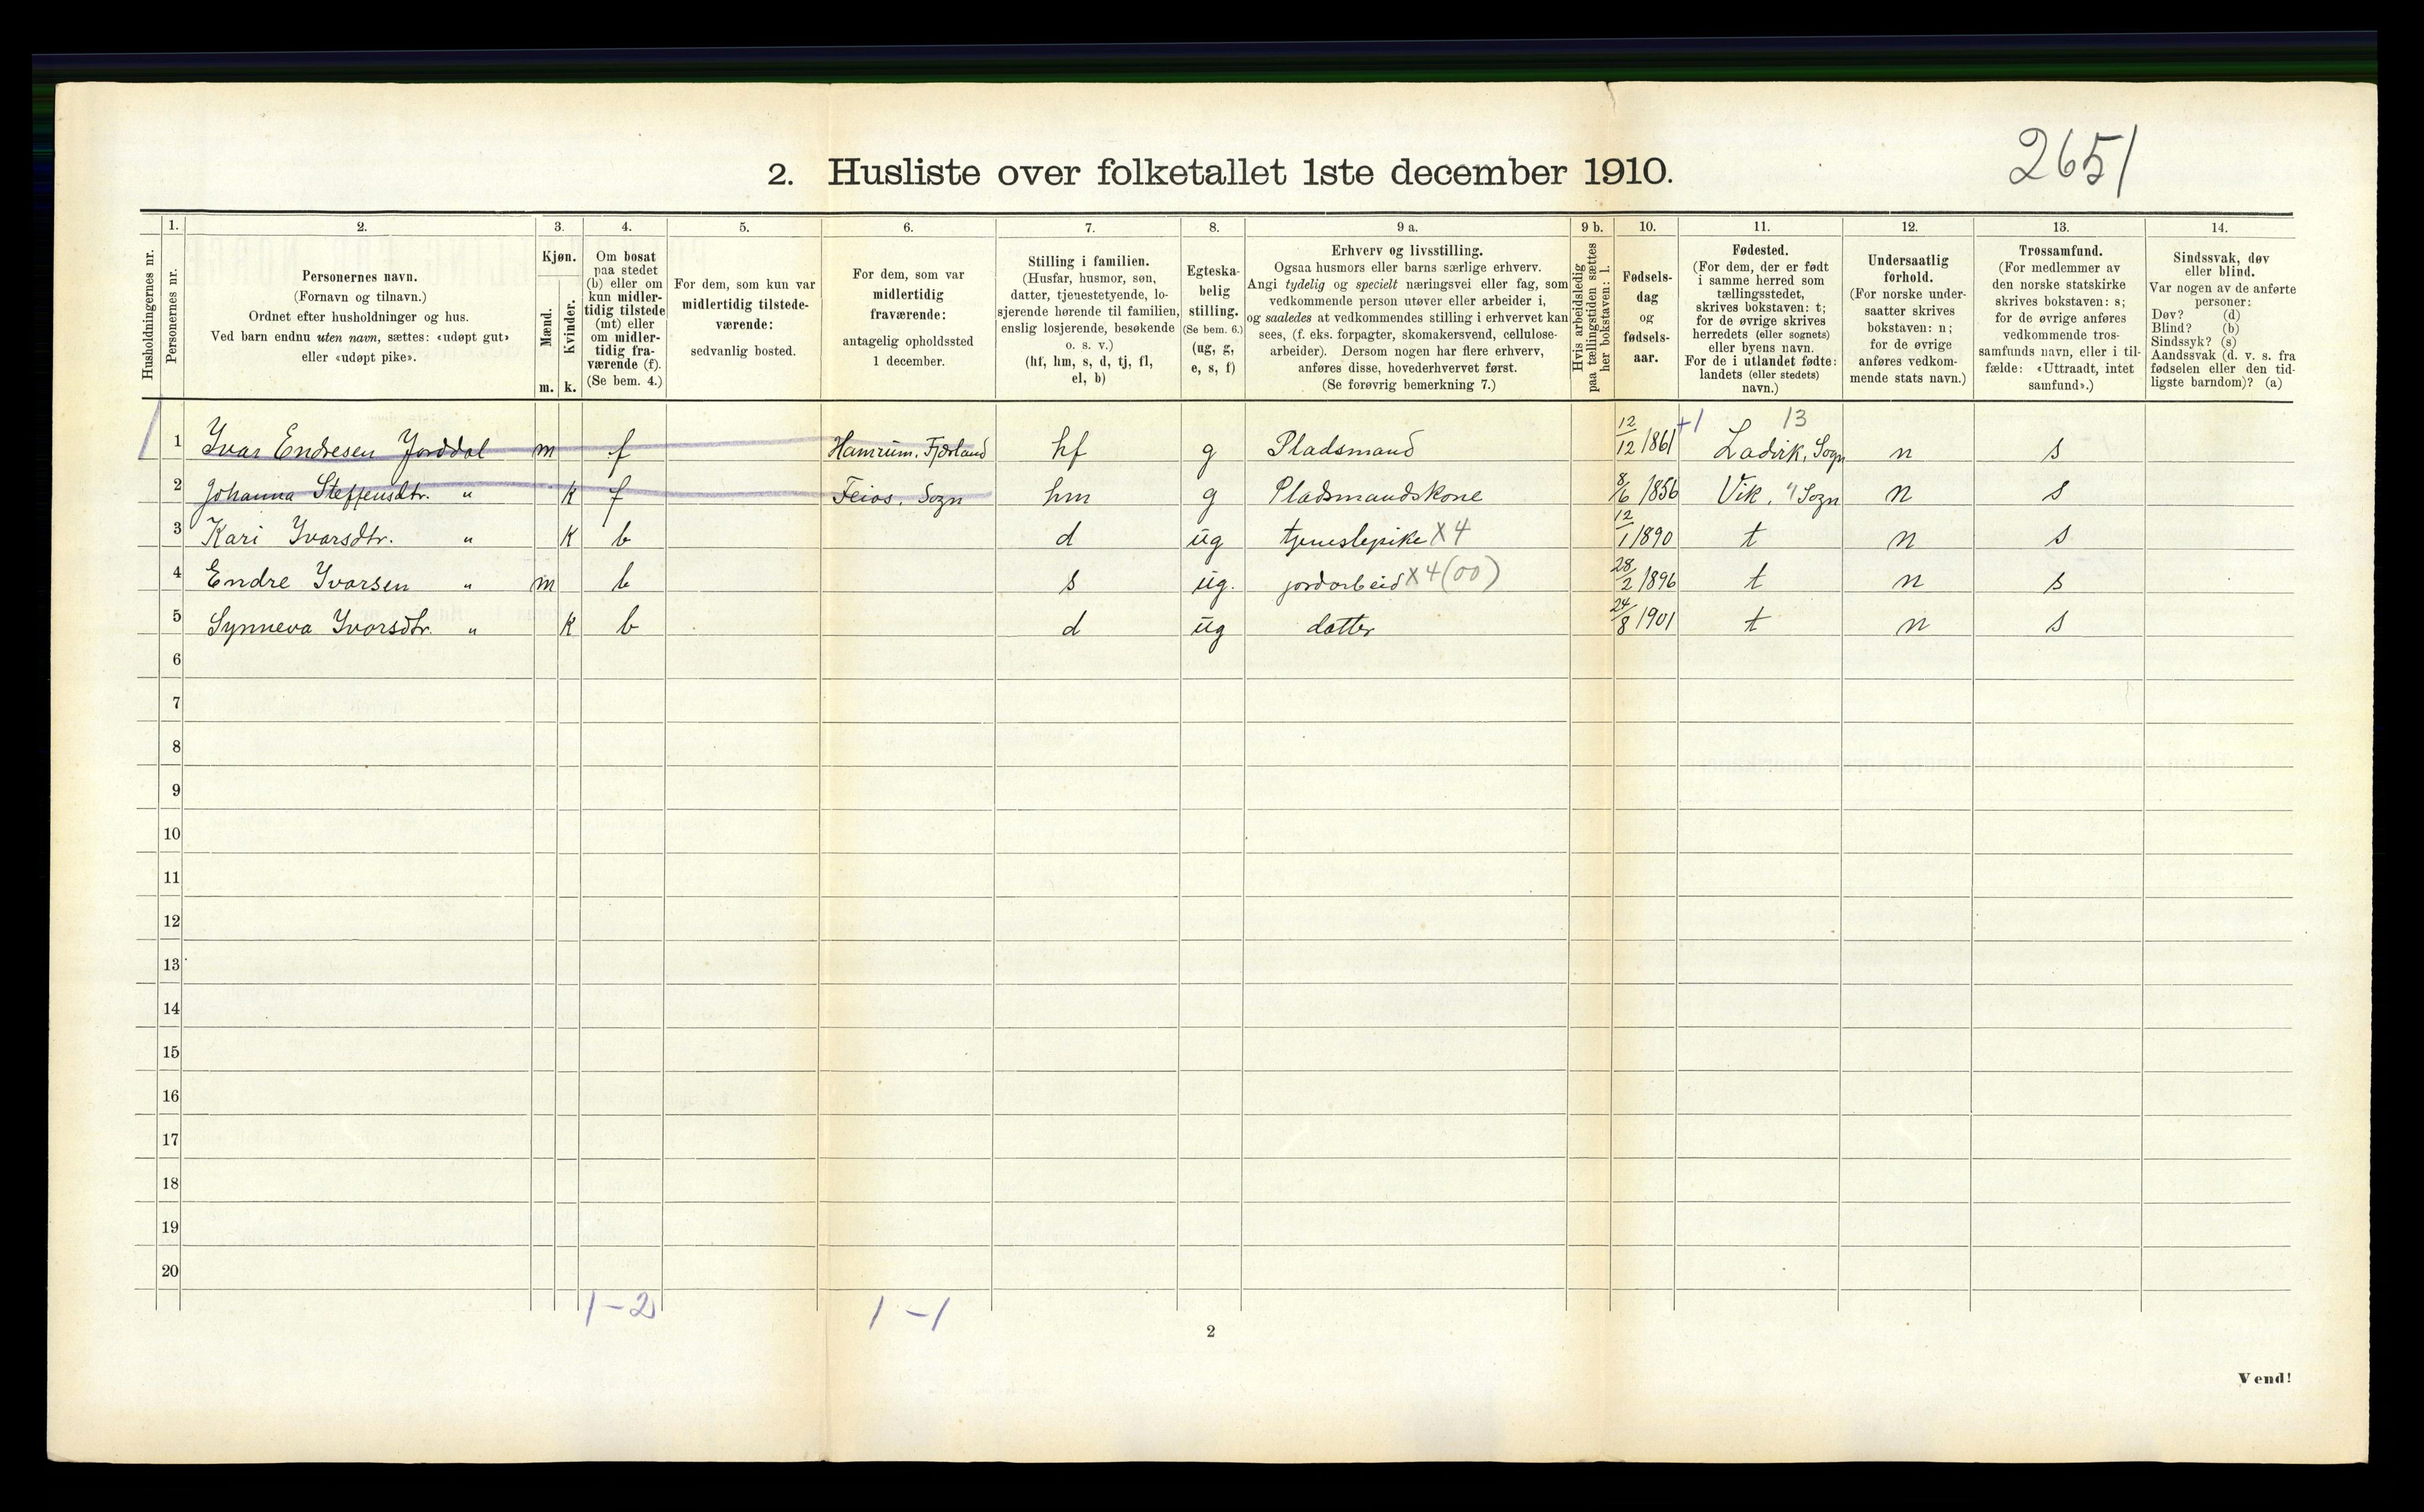 2651
2. Husliste over folketallet 1ste december 1910.
Husholdningernes nr.
1.
Personernes nr.
2.
Personernes navn.
(Fornavn og tilnavn.)
Ordnet efter husholdninger og hus.
Ved barn endnu uten navn, sættes: «udøpt gut»
eller «udøpt pike».
3.
Kjøn.
Mænd.
Kvinder.
m. k.
4.
Om bosat
paa stedet
(b) eller om
kun midler-
tidig tilstede
(mt) eller
om midler-
tidig fra-
værende (f).
(Se bem. 4.)
5.
For dem, som kun var
midlertidig tilstede-
værende:
sedvanlig bosted.
6.
For dem, som var
midlertidig
fraværende:
antagelig opholdssted
1 december.
7.
Stilling i familien.
(Husfar, husmor, søn,
datter, tjenestetyende, lo-
sjerende hørende til familien,
enslig losjerende, besøkende
o. s. v.)
(hf, hm, s, d, tj, fl,
el, b)
8.
Egteska-
belig
stilling.
(Se bem. 6.)
(ug, g,
e, s, f)
9 a.
Erhverv og livsstilling.
Ogsaa husmors eller barns særlige erhverv.
Angi tydelig og specielt næringsvei eller fag, som
vedkommende person utøver eller arbeider i,
og saaledes at vedkommendes stilling i erhvervet kan
sees, (f. eks. forpagter, skomakersvend, cellulose-
arbeider). Dersom nogen har flere erhverv,
anføres disse, hovederhvervet først.
(Se forøvrig bemerkning 7.)
9 b.
Hvis arbeidsledig
paa tællingstiden sættes
her bokstaven: l.
10.
Fødsels-
dag
og
fødsels-
aar.
11.
Fødested.
(For dem, der er født
i samme herred som
tællingsstedet,
skrives bokstaven: t;
for de øvrige skrives
herredets (eller sognets)
eller byens navn.
For de i utlandet fødte:
landets (eller stedets)
navn.)
12.
Undersaatlig
forhold.
(For norske under-
saatter skrives
bokstaven: n;
for de øvrige
anføres vedkom-
mende stats navn.)
13.
Trossamfund.
(For medlemmer av
den norske statskirke
skrives bokstaven: s;
for de øvrige anføres
vedkommende tros-
samfunds navn, eller i til-
fælde: «Uttraadt, intet
samfund».)
14.
Sindssvak, døv
eller blind.
Var nogen av de anførte
personer:
Døv? (d)
Blind? (b)
Sindssyk? (s)
Aandssvak (d. v. s. fra
fødselen eller den tid-
ligste barndom)? (a)
1 Ivar Endresen Jorddal m f Hamrum. Fjærland hf g Pladsmand 12/12 1861 +1 13 Ladvik, Sogn n s
2 Johanna Steffensdtr. " k f Feios, Sogn hm g Pladsmandskone 8/6 1856 Vik, " Sogn n s
3 Kari Ivarsdtr. " k b d ug tjenestepike X4 12/1 1890 t n s
4 Endre Ivarsen " m b s ug. jordarbeid X4(00) 28/2 1896 t n s
5 Synneva Ivarsdtr. " k b d ug datter 24/8 1901 t n s
6
7
8
9
10
11
12
13
14
15
16
17
18
19
20
1-2 1-1
2
Vend!